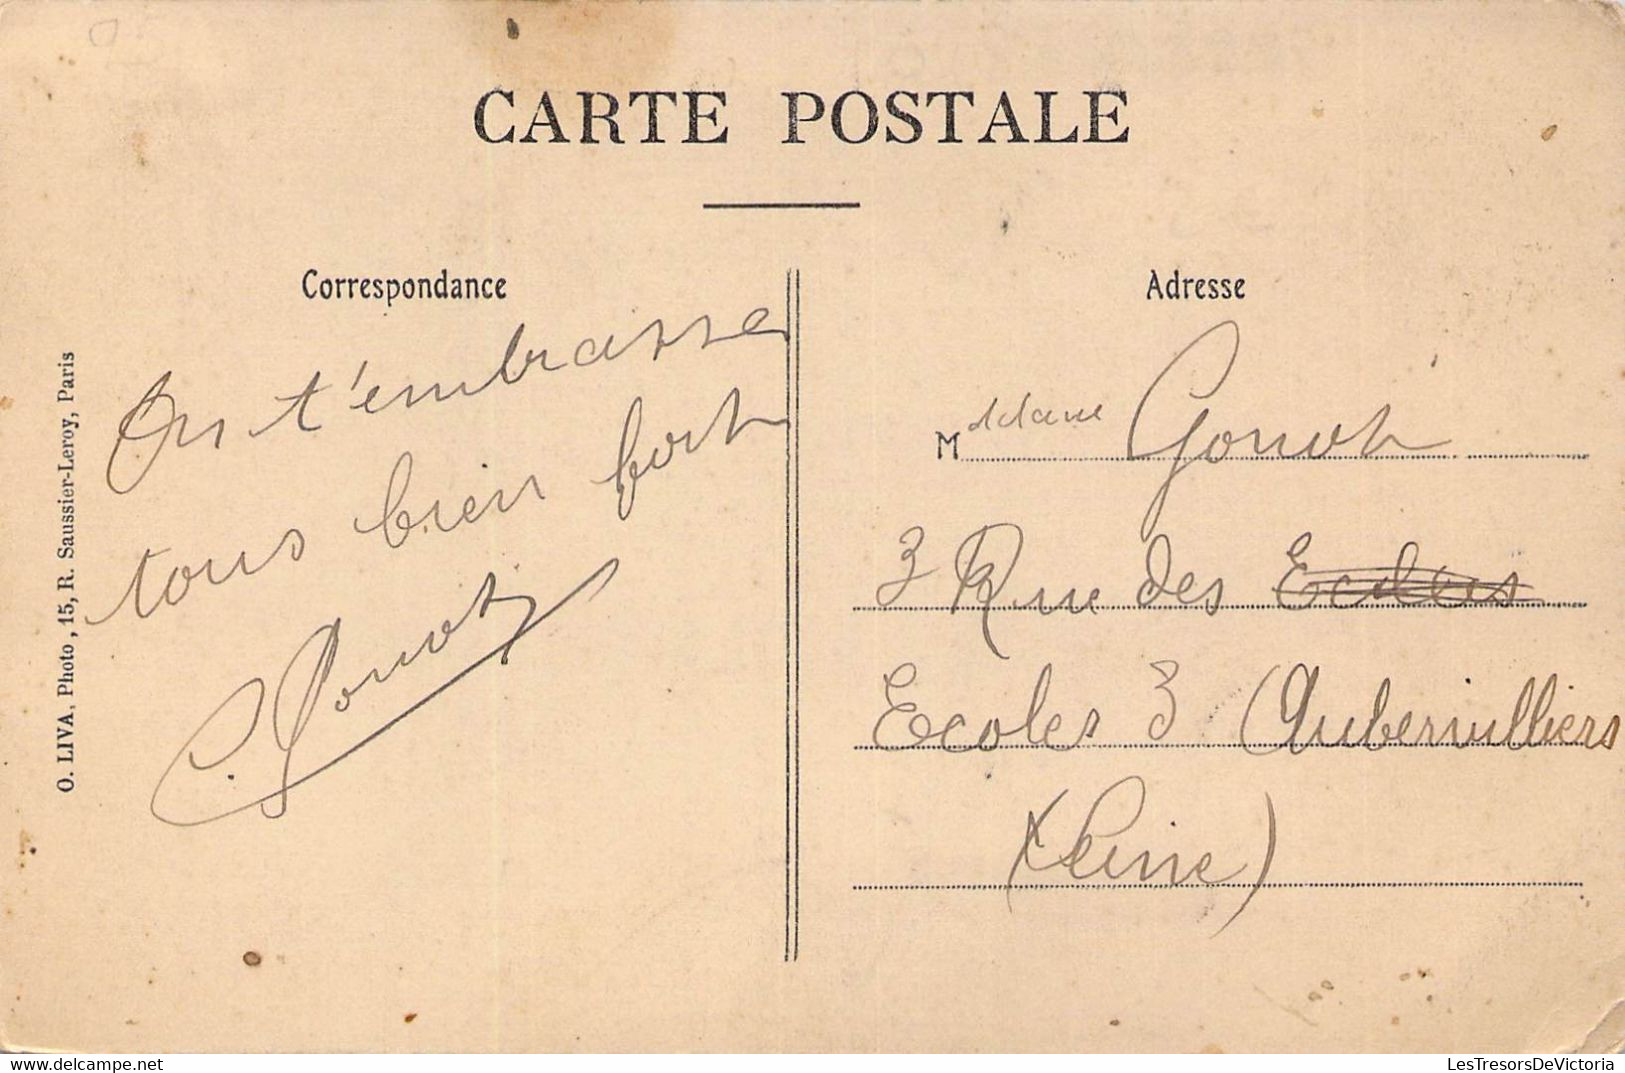 CARTE POSTALE
Correspondance
On t'embrasse
tous bien fort
Gonot
O. LIVA, Photo, 15, R. Saussier-Leroy, Paris
Adresse
Madame Gonot
3 Rue des Ecoles
Ecoles 3 Aubervilliers
(Seine)
delcampe.net
LesTresorsDeVictoria